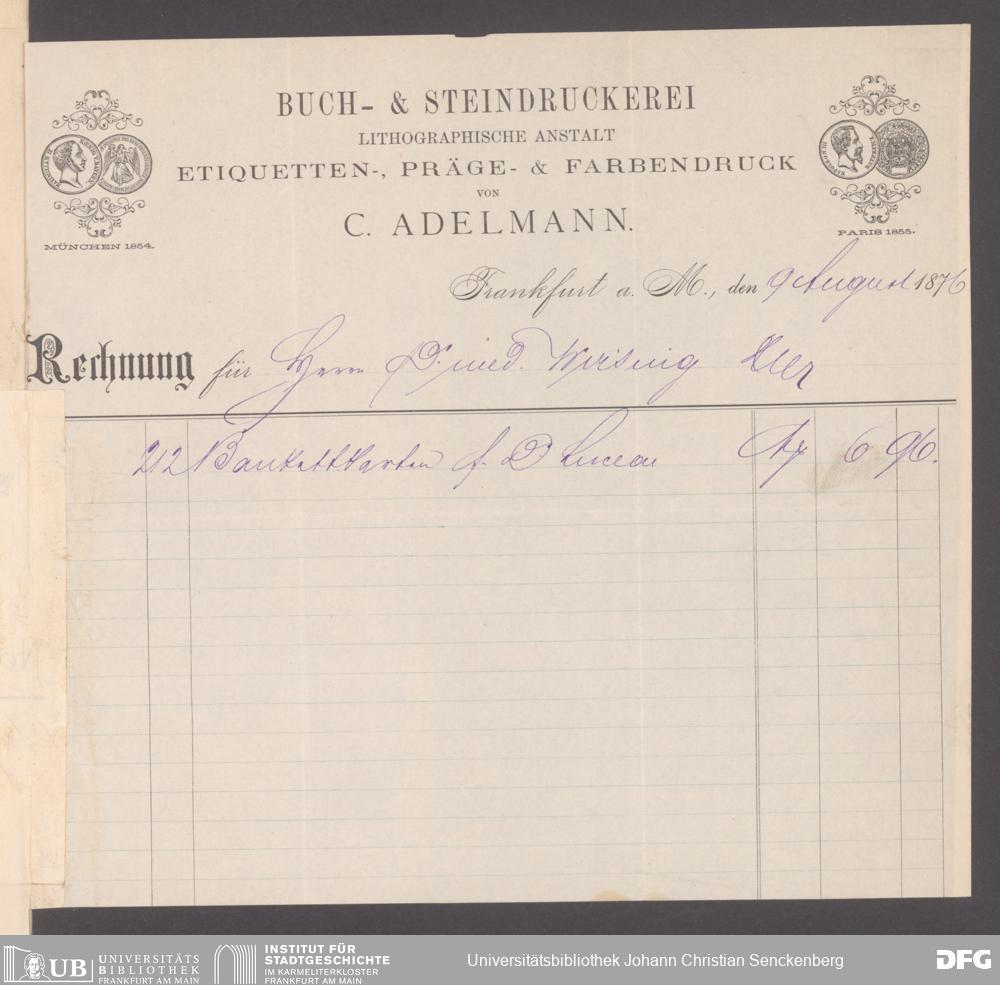 BUCH- & STEINDRUCKEREI
LITHOGRAPHISCHE ANSTALT
ETIQUETTEN-, PRÄGE- & FARBENDRUCK
VON
C. ADELMANN.
MÜNCHEN 1854.
PARIS 1855.
Frankfurt a. M., den 9 August 1876
Rechnung für Herrn Dr. med. Wirsing
212 Bankettkarten f. D Lucae M 6 96.
UB UNIVERSITÄTS
BIBLIOTHEK
FRANKFURT AM MAIN
INSTITUT FÜR
STADTGESCHICHTE
IM KARMELITERKLOSTER
FRANKFURT AM MAIN
Universitätsbibliothek Johann Christian Senckenberg
DFG